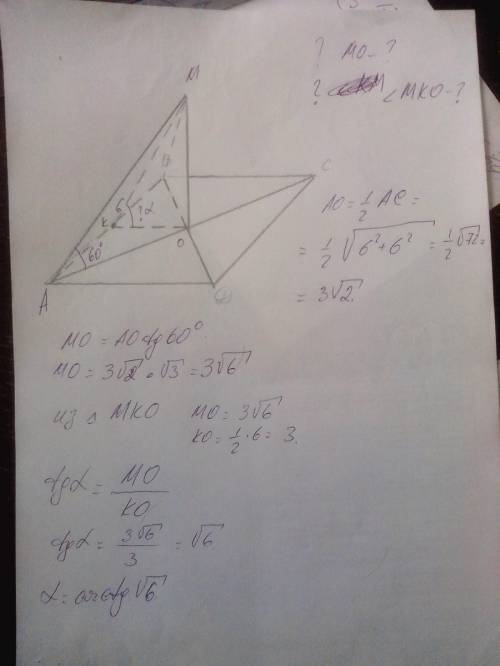 ? MO - ?
? <MKO - ?
M
B
C
6
? α
K
60°
O
A
AO = 1/2 AC =
= 1/2 √(6² + 6²) = 1/2 √72 =
= 3√2.
MO = AO tg 60°
MO = 3√2 • √3 = 3√6
из △ MKO MO = 3√6
KO = 1/2 · 6 = 3.
tgα = MO/KO
tgα = 3√6/3 = √6
α = arctg √6